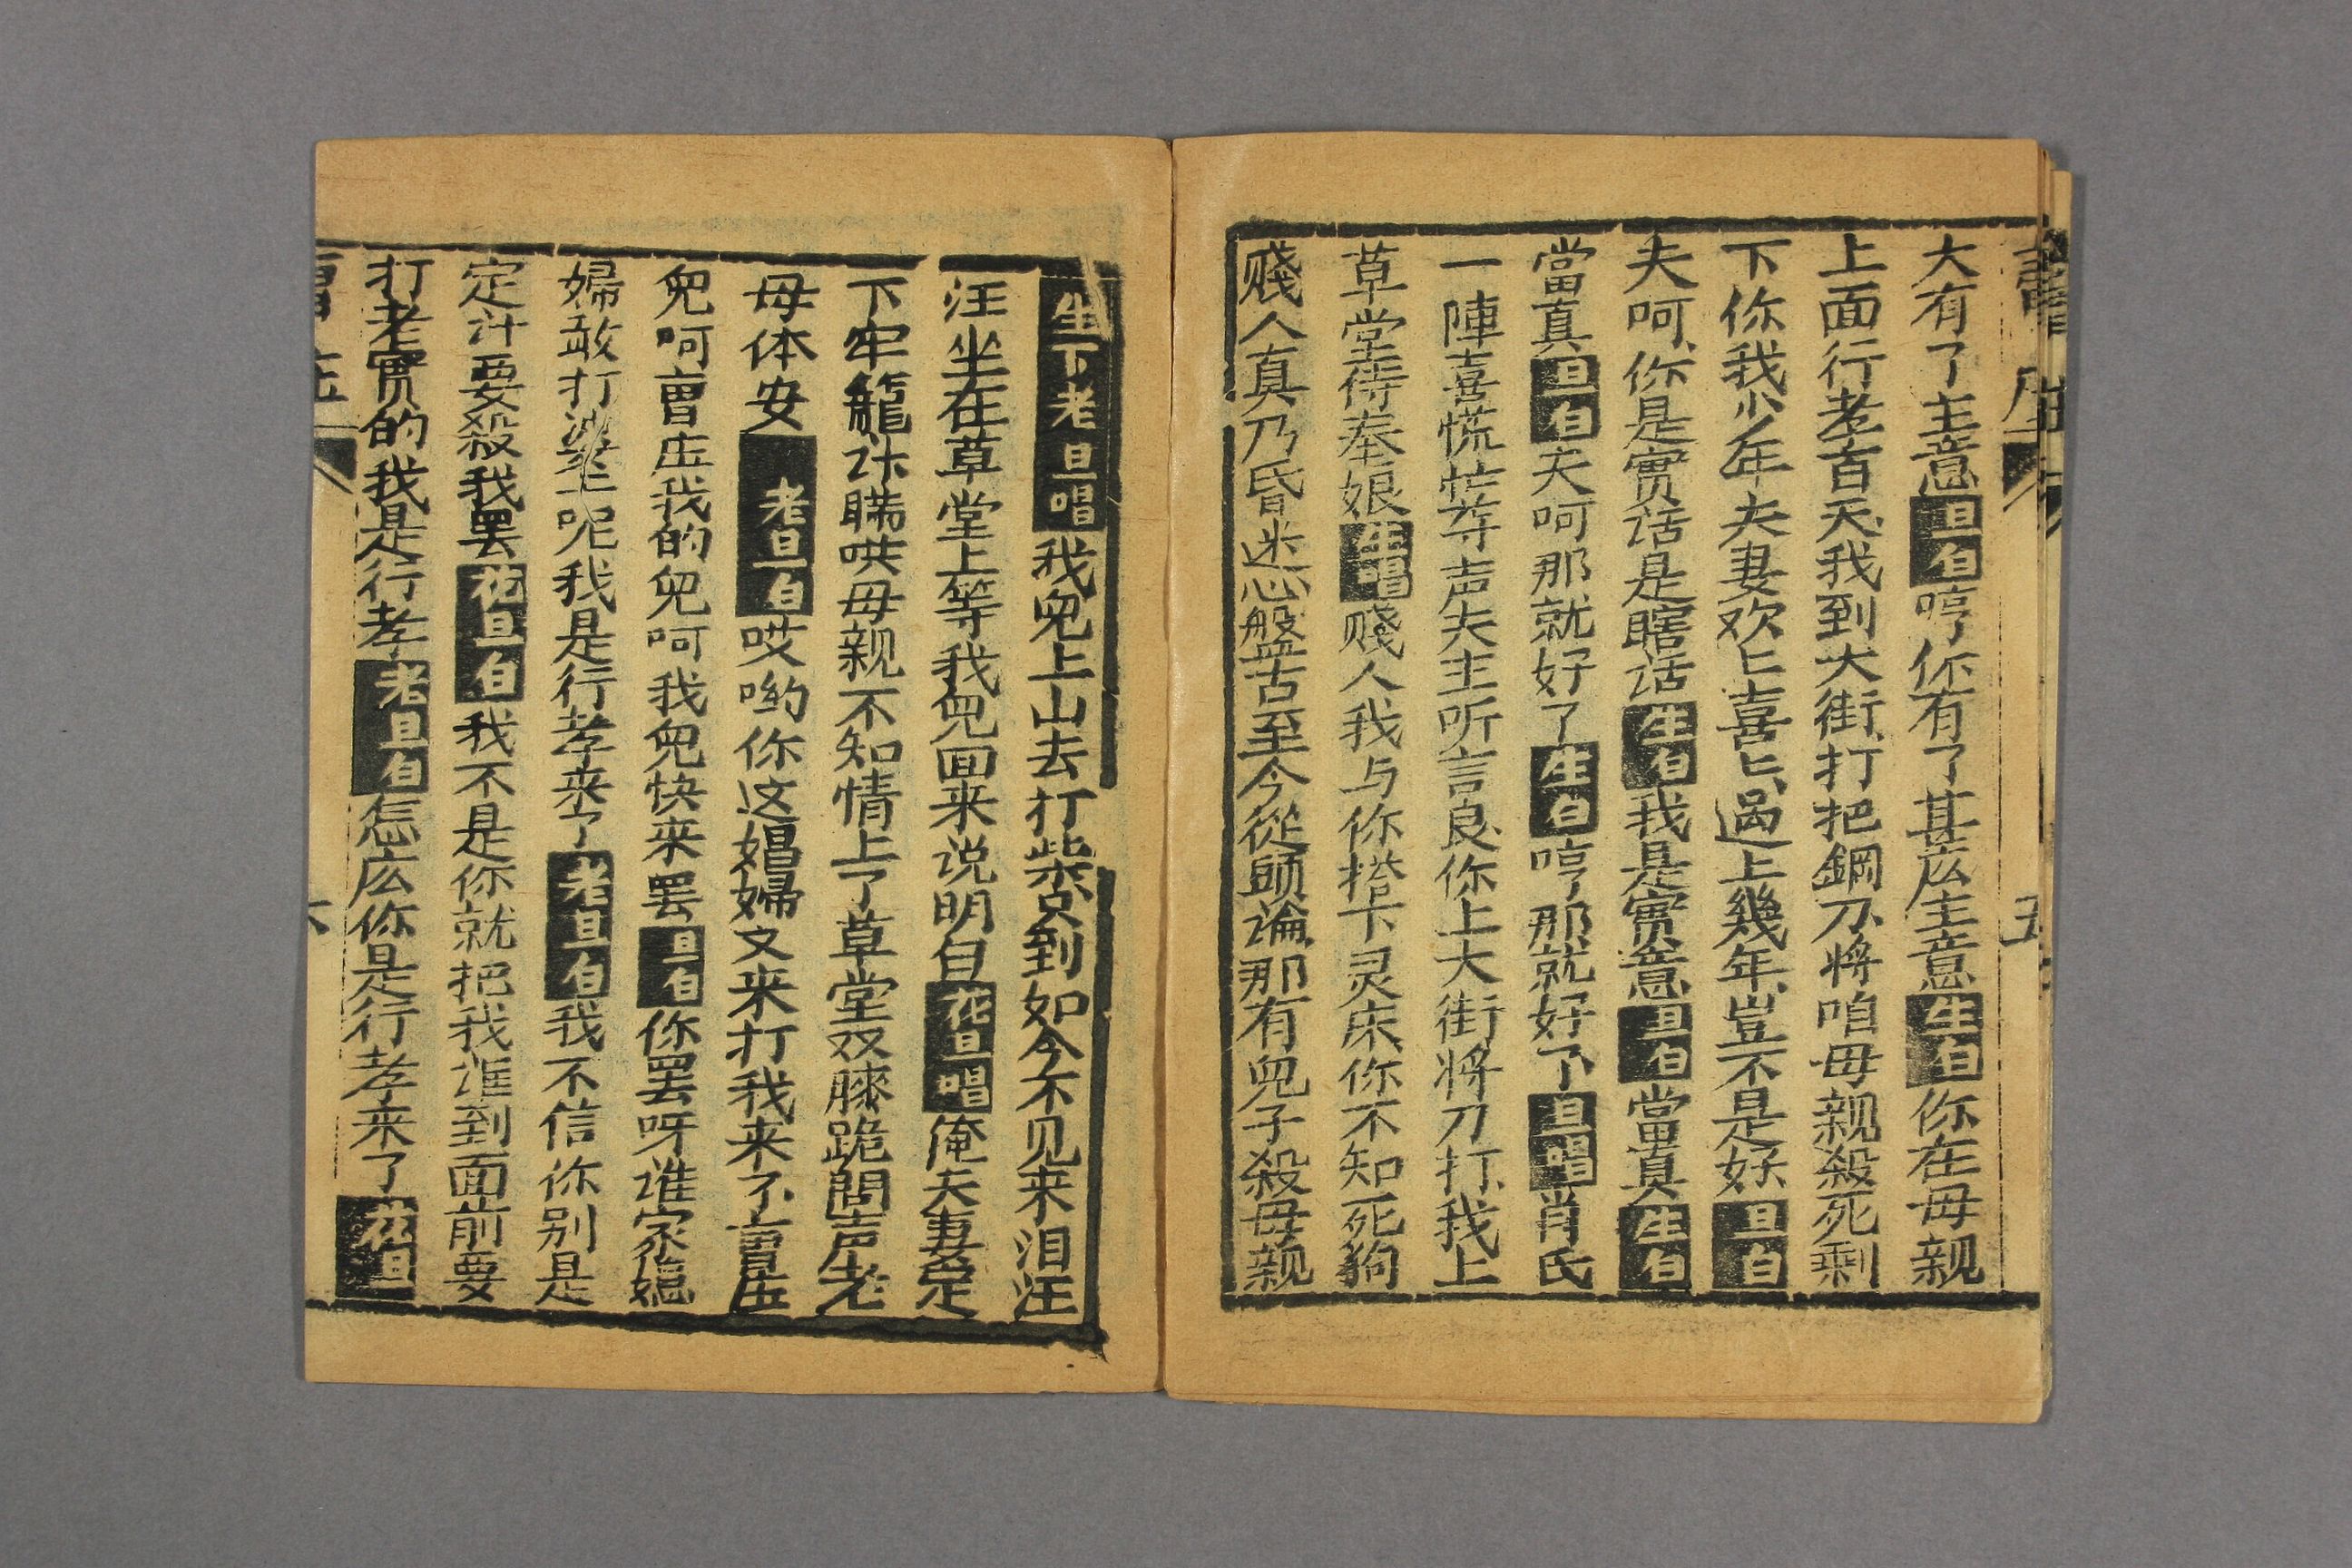 五
大有了主意旦白哼你有了甚庅主意生白你在母親
上面行孝百天我到大街打把鋼刀將咱母親殺死剩
下你我少年夫妻欢匕喜匕过上幾年豈不是好旦白
夫呵你是实话是瞎话生白我是实意旦白當真生白
當真旦白夫呵那就好了生白哼那就好了旦唱肖氏
一陣喜慌忙等声夫主听言良你上大街将刀打我上
草堂待奉娘生唱贱人我与你搭下灵床你不知死狗
贱人真乃昏迷心盤古至今從頭論那有兒子殺母親
生下老旦唱我兒上山去打柴到如今不见来泪汪
汪坐在草堂上等我兒回来说明白花旦唱俺夫妻定
下牢籠计瞒哄母親不知情上了草堂双膝跪問声老
母体安老旦白哎哟你这娼婦又来打我来了曹庄
兒呵曹庄我的兒呵我兒快来罢旦白你罢呀谁家媳
婦敢打婆二呢我是行孝来了老旦白我不信你别是
定计要殺我罢花旦白我不是你就把我谁到面前要
打老实的我是行孝老旦白怎庅你是行孝来了花旦
曹庄
六